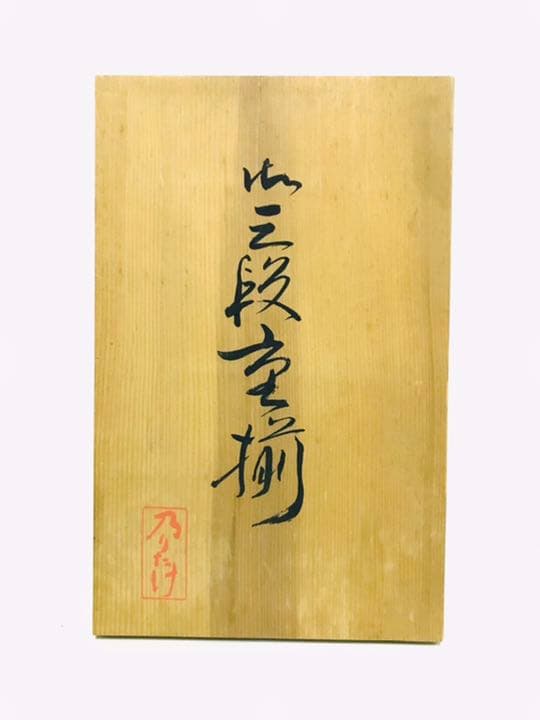 御三段重揃
乃りたけ